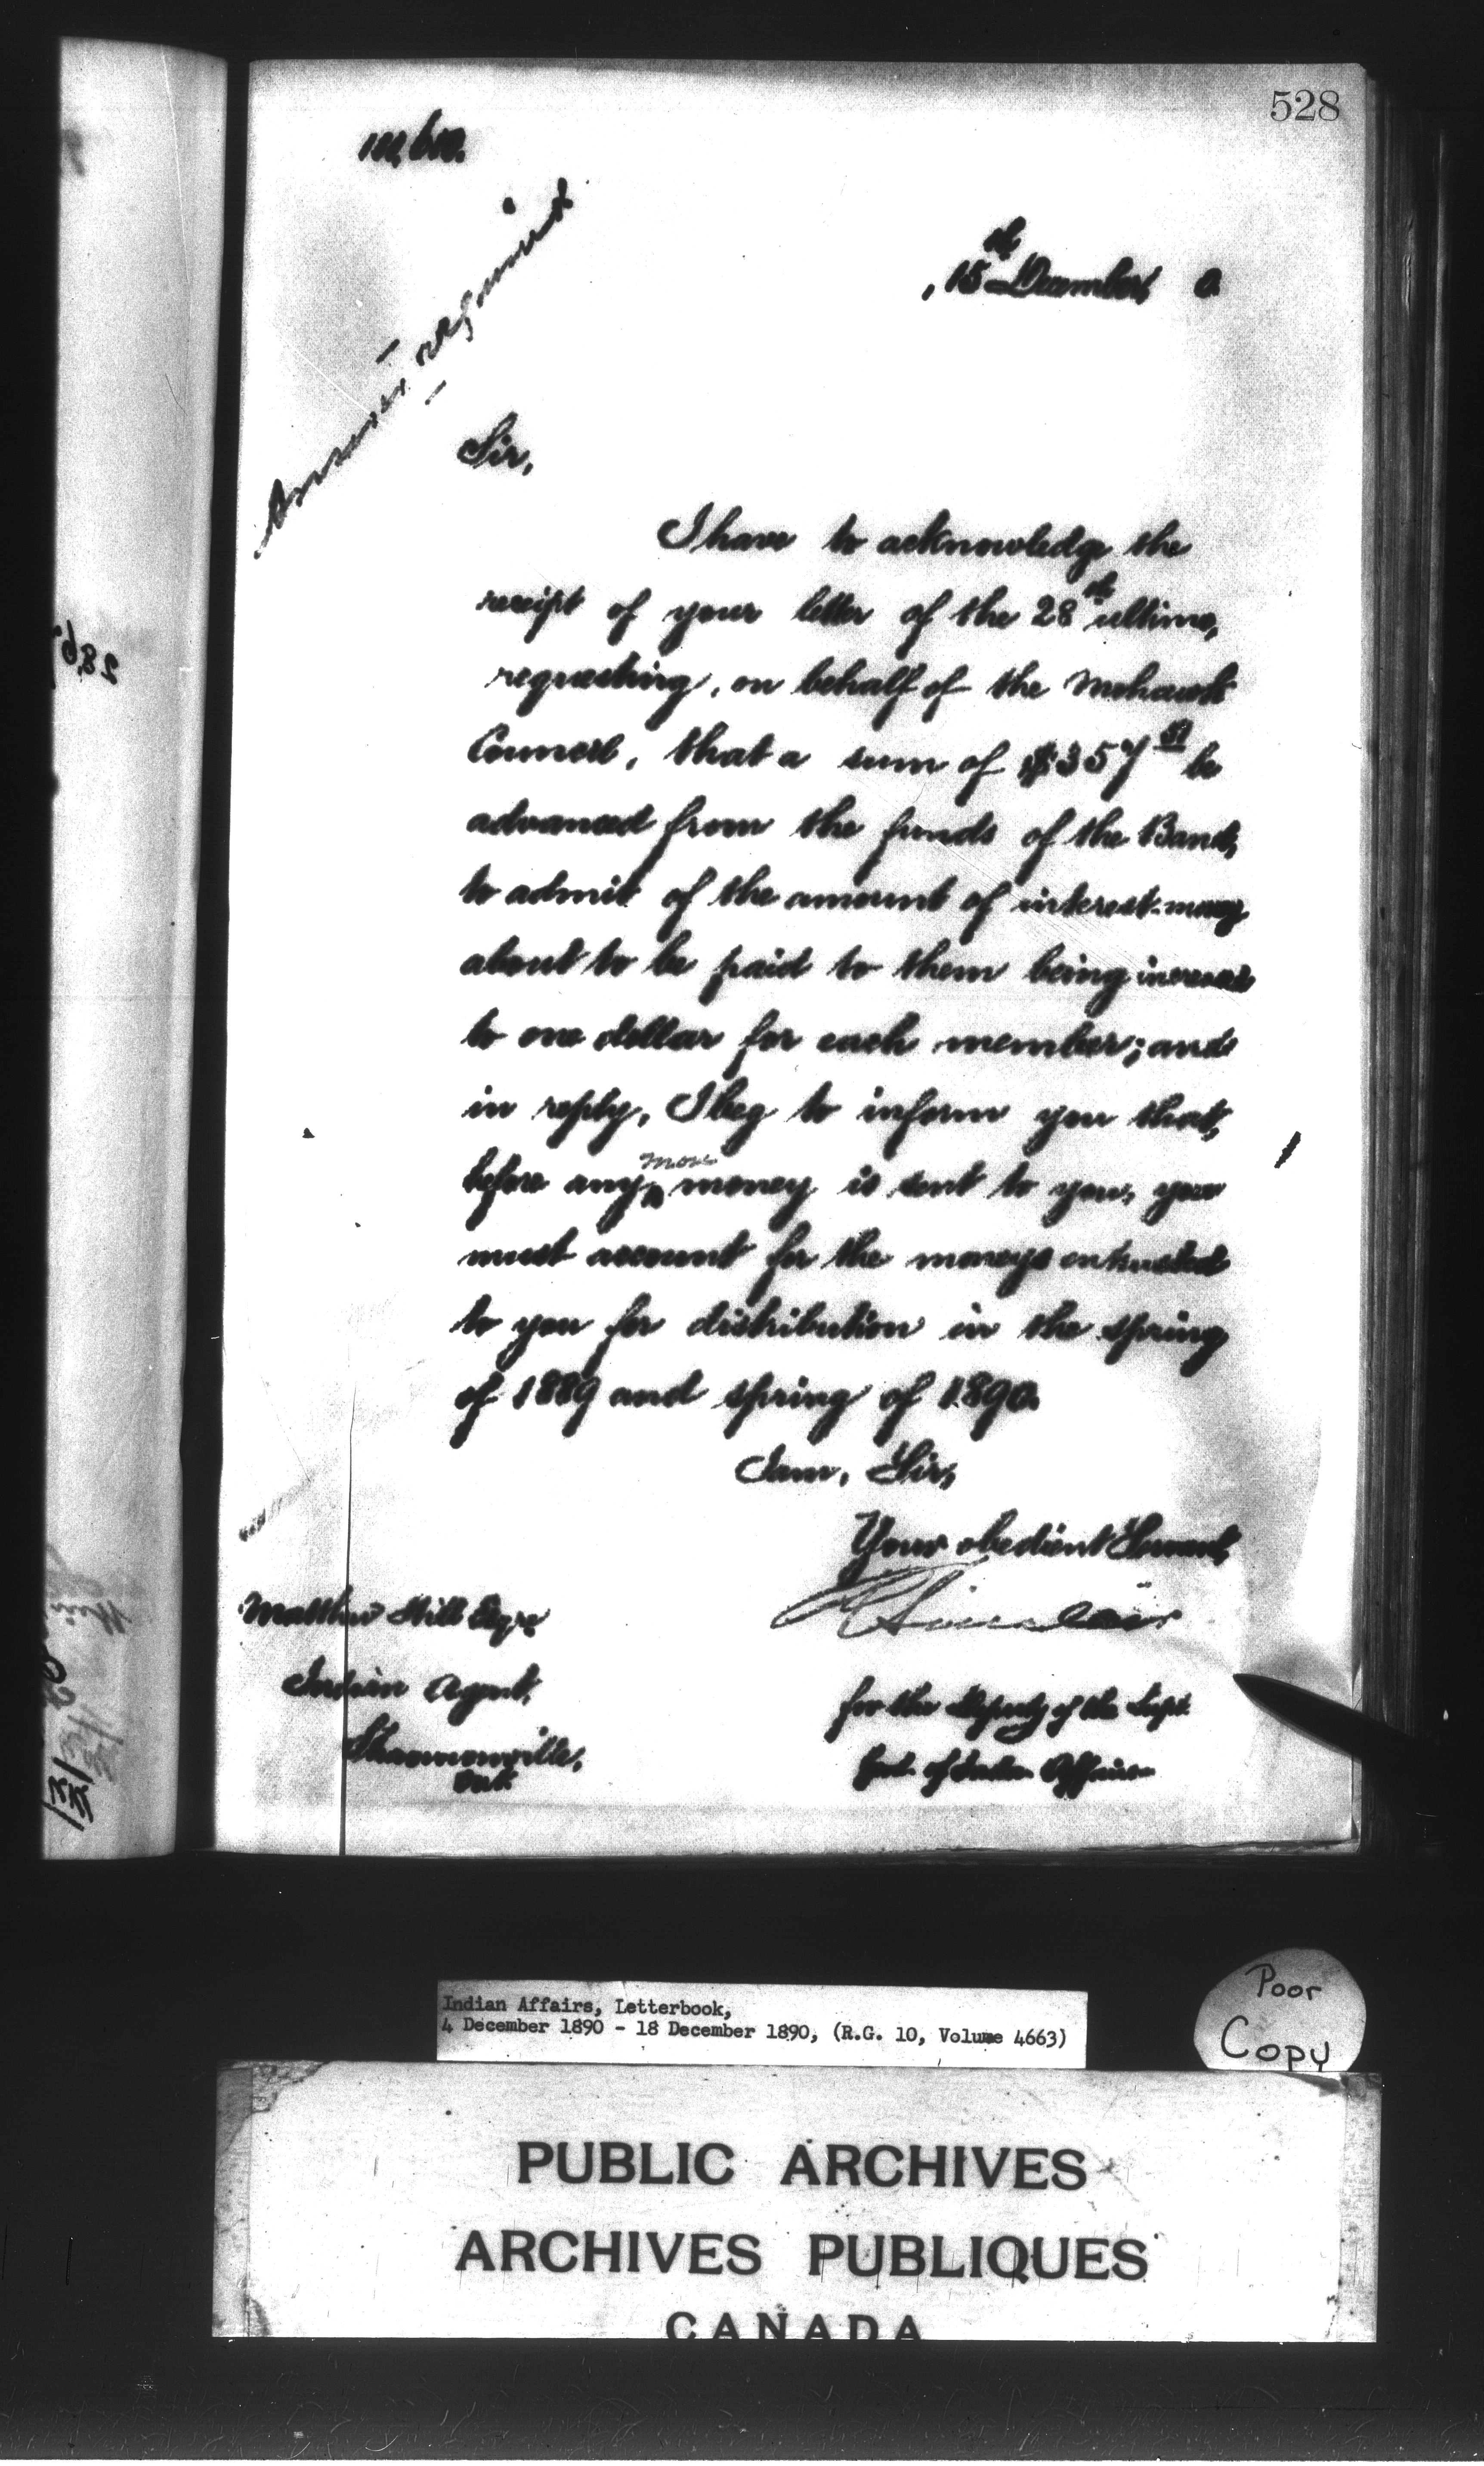 528
15th December 0
Answer required
Sir,
I have to acknowledge the
receipt of your letter of the 28th ultimo,
requesting, on behalf of the Mohawk
Council, that a sum of $357 51 be
advanced from the funds of the Band,
to admit of the amount of interest money
about to be paid to them being increased
to one dollar for each member; and
in reply, I beg to inform you that,
before any more money is sent to you, you
must account for the moneys entrusted
to you for distribution in the spring
of 1889 and spring of 1890.
I am, Sir,
Your obedient Servant,
R Sinclair
for the Deputy of the Supt.
Genl. of Indian Affairs
Matthew Hill Esqre
Indian Agent,
Shannonville,
Ont
Indian Affairs, Letterbook,
4 December 1890 - 18 December 1890, (R.G. 10, Volume 4663)
Poor
Copy
PUBLIC ARCHIVES
ARCHIVES PUBLIQUES
CANADA